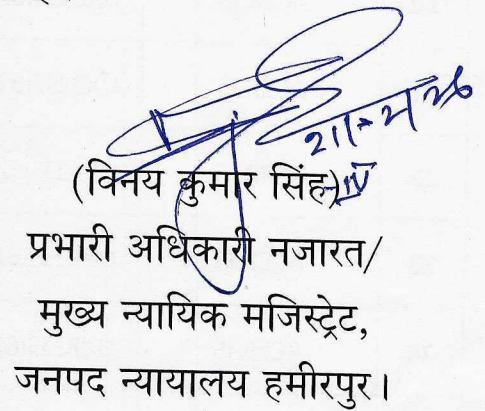 (विनय कुमार सिंह)IV
प्रभारी अधिकारी नजारत/
मुख्य न्यायिक मजिस्ट्रेट,
जनपद न्यायालय हमीरपुर।